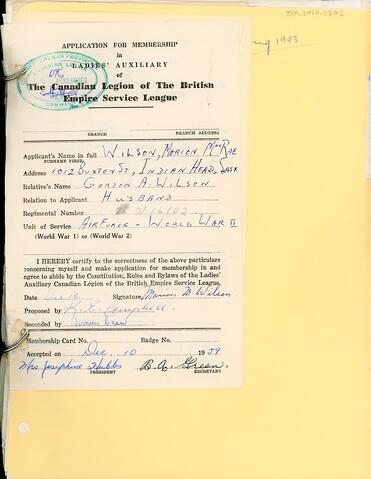 ing 1993
APPLICATION FOR MEMBERSHIP
in
LADIES' AUXILIARY
of
The Canadian Legion of The British
Empire Service League
OK
BRANCH BRANCH ADDRESS
Applicant's Name in full WILSON, MARION MACRAE
SURNAME FIRST
Address 1012 BUXTON ST, INDIAN HEAD, SASK
Relative's Name GORDON A. WILSON
Relation to Applicant HUSBAND
Regimental Number
Unit of Service AIRFORCE - WORLD WAR II
(World War 1) or (World War 2)
I HEREBY certify to the correctness of the above particulars
concerning myself and make application for membership in and
agree to abide by the Constitution, Rules and Bylaws of the Ladies'
Auxiliary Canadian Legion of the British Empire Service League.
Date Dec 10 Signature, Marion M. Wilson
Proposed by K. E. Campbell
Seconded by
Membership Card No. Badge No.
Accepted on Dec. 10 1959
Mrs Josephine Hubbs B. A. Green
PRESIDENT SECRETARY